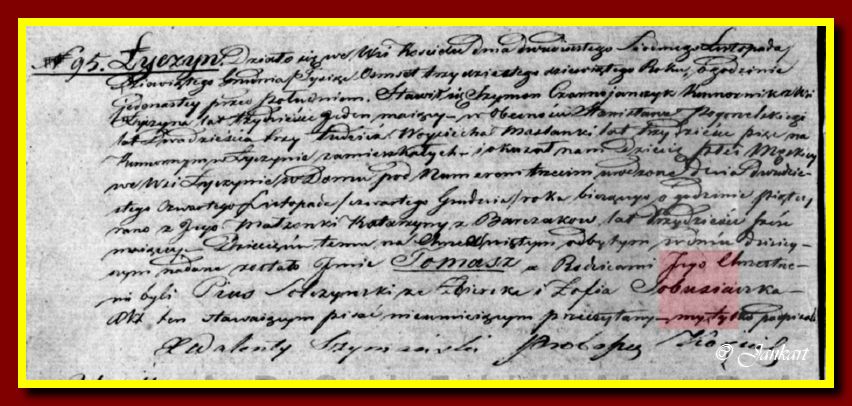 № 95. Łyczyn. Działo się we Wsi Kościele dnia dwudziestego Siódmego Listopada/
dziewiątego Grudnia/ Tysiąc Osmset trzydziestego dziewiątego Roku, o godzinie
Jedenastej przed południem. Stawił się Szymon Czarnojanczyk Komornik z Wsi
Łyczyna lat trzydzieście jeden mający w obecności Stanisława
lat dwadzieścia trzy tudzież Woyciecha Maslanki lat trzydzieście pięć na
Komornym w Łyczynie zamieszkałych i okazał nam Dziecię płci Męskiej
we Wsi Łyczynie w Domu pod Numerem trzecim urodzone dnia dwudzie-
stego Czwartego Listopada/ szostego Grudnia/ roku bieżącego o godzinie piątej
rano z Jego Małżonki Katarzyny z Barczaków lat trzydzieście
mającej. Dziecięciu temu na Chrzcie Świętym odbytym w dniu dzisiej-
szym nadane zostało Imie Tomasz a Rodzicami Jego Chrzestne-
mi byli Pius ze Zbierska i Zofia Sobusiaczka
Akt ten stawaiącym pisać nieumieiącym przeczytany my tylko podpisali
X Walenty Szymański
© Jankart